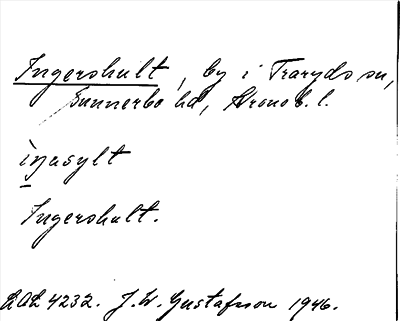 Ingershult, by i Traryds sn,
Sunnerbo hd, Kronob. l.
ìŋasylt
Ingershult.
LAL 4232. J. W. Gustafsson 1946.